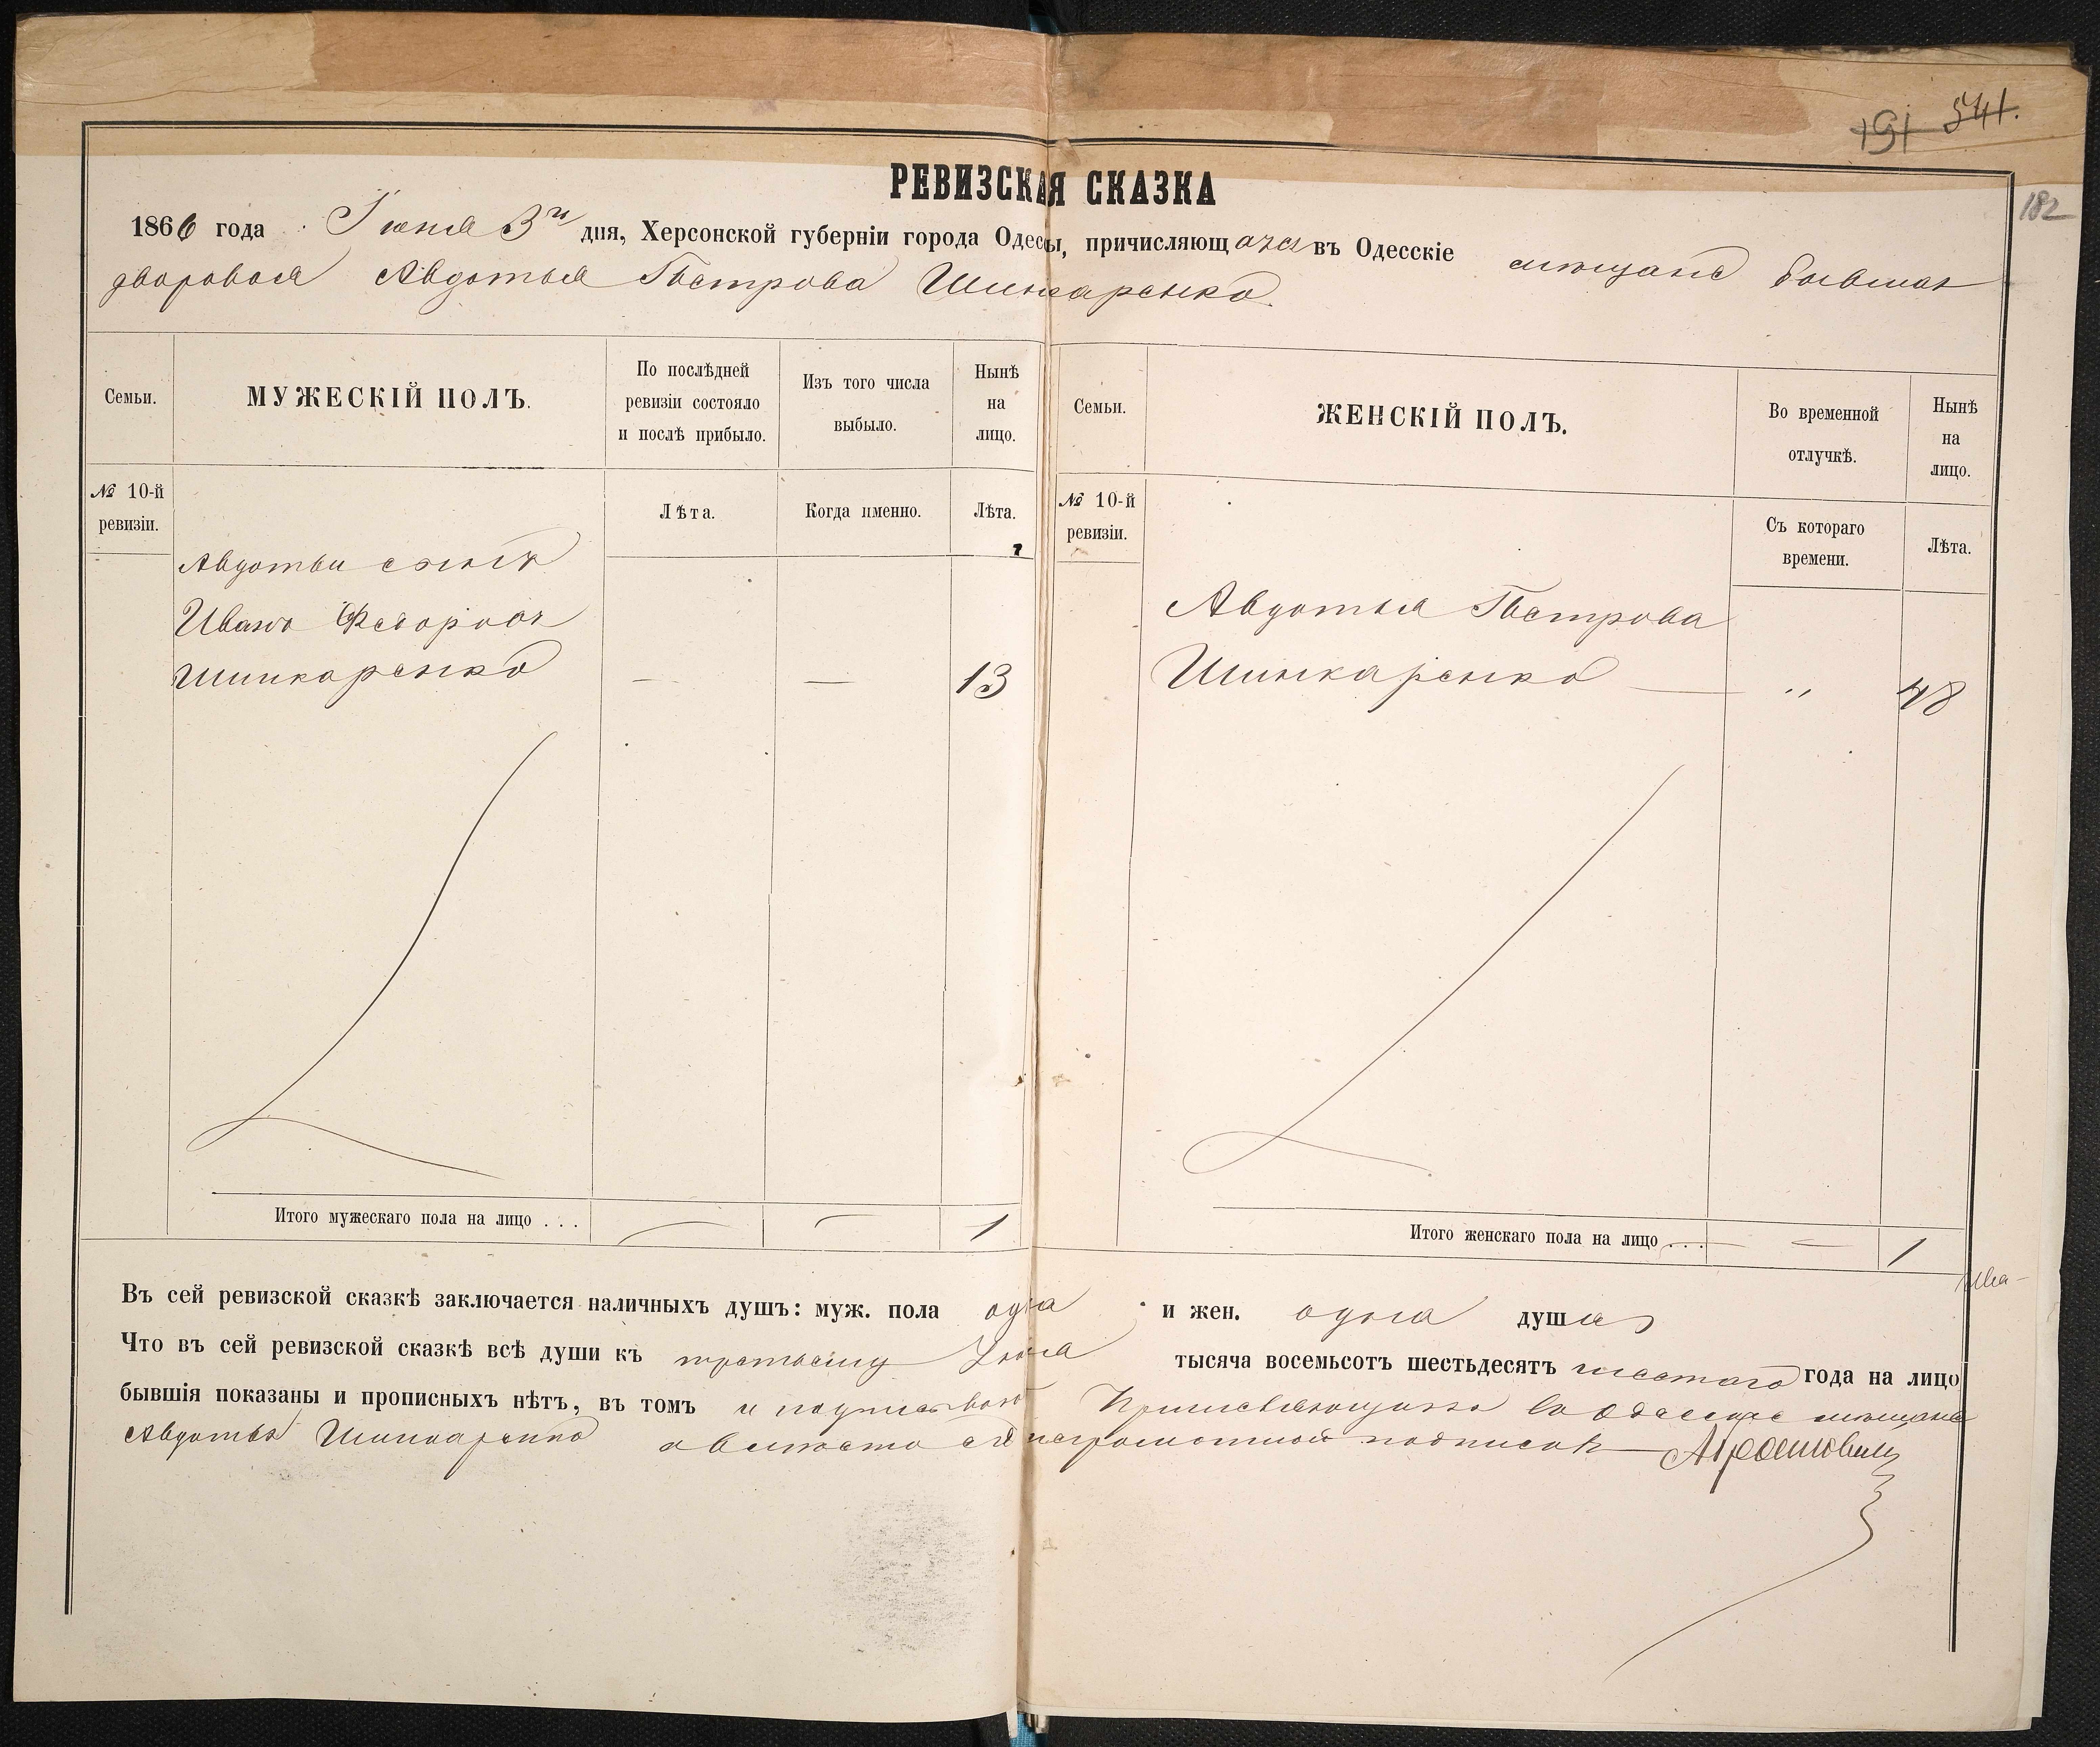 191 541.
182
РЕВИЗСКАЯ СКАЗКА
1866 года Іюня 3го дня, Херсонской губерніи города Одесы, причисляющаяся въ Одесскіе мѣщане бывшая
дворовая Авдотья Петрова Шинкаренко
Семьи.
МУЖЕСКІЙ ПОЛЪ.
По послѣдней
ревизіи состояло
и послѣ прибыло.
Изъ того числа
выбыло.
Нынѣ
на
лицо.
Семьи.
ЖЕНСКІЙ ПОЛЪ.
Во временной
отлучкѣ.
Нынѣ
на
лицо.
№ 10-й
ревизіи.
Лѣта.
Когда именно.
Лѣта.
№ 10-й
ревизіи.
Съ котораго
времени.
Лѣта.
Авдотьи сынъ
Иванъ Федоровъ
Шинкаренко — — 13
Авдотья Петрова
Шинкаренко — " 48
Итого мужескаго пола на лицо . . . — — 1
Итого женскаго пола на лицо . . . — 1
Въ сей ревизской сказкѣ заключается наличныхъ душъ: муж. пола одна и жен. одна душа
Что въ сей ревизской сказкѣ всѣ души къ третьему Іюня тысяча восемьсотъ шестьдесятъ шестаго года на лицо
бывшія показаны и прописныхъ нѣтъ, въ томъ и подписываюсь въ Одесскіе мѣщане
Авдотья Шинкаренко а вмѣсто ея неграмотной подписалъ